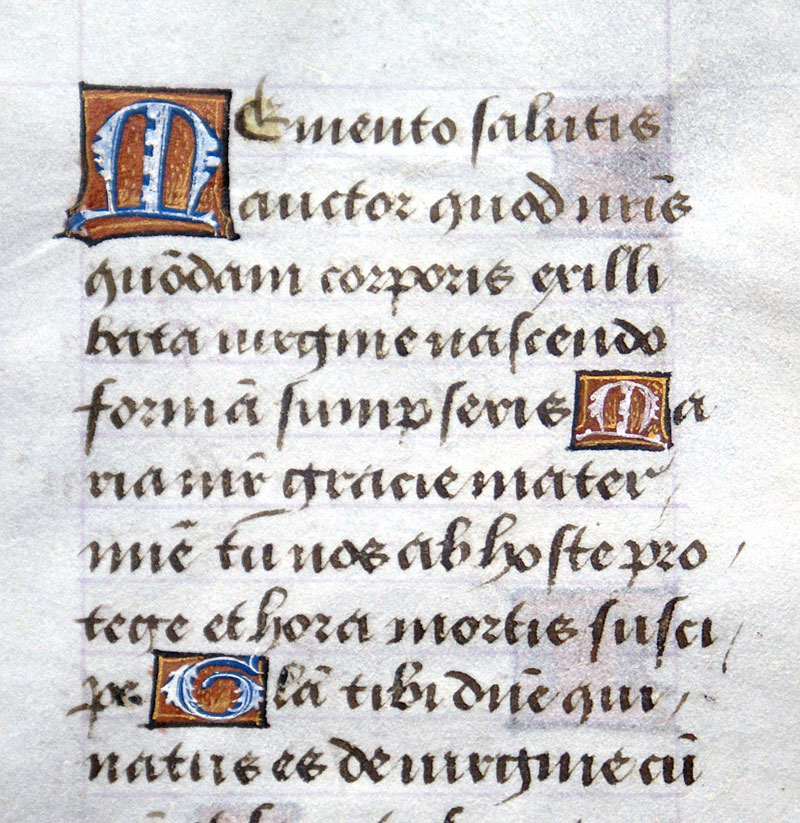 MEmento salutis
auctor quod nr̄is
quōdam corporis ex illi
bata uirgine nascendo
formā sumpseris Ma
ria mr̄ gracie mater
mīe tū nos ab hoste pro
tege et hora mortis susci
pe. Glā tibi dn̄e qui
natus es de uirgine cū